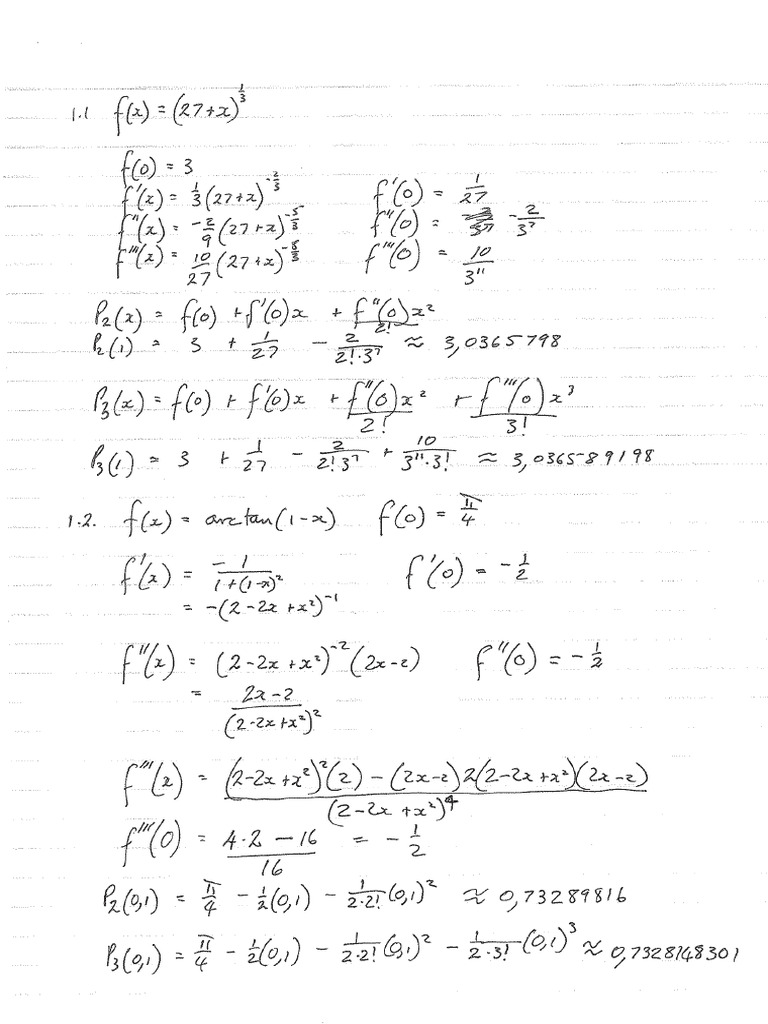 1.1 f(x) = (27+x)^(1/3)
f(0) = 3
f'(x) = 1/3 (27+x)^(-2/3) f'(0) = 1/27
f''(x) = -2/9 (27+x)^(-5/3) f''(0) = -2/3^7
f'''(x) = 10/27 (27+x)^(-8/3) f'''(0) = 10/3^11
P₂(x) = f(0) + f'(0)x + f''(0)x²/2!
P₂(1) = 3 + 1/27 - 2/(2!·3^7) ≈ 3,0365798
P₃(x) = f(0) + f'(0)x + f''(0)x²/2! + f'''(0)x³/3!
P₃(1) = 3 + 1/27 - 2/(2!3^7) + 10/(3^11·3!) ≈ 3,036589198
1.2. f(x) = arctan(1-x) f(0) = π/4
f'(x) = -1/(1+(1-x)²) f'(0) = -1/2
= -(2-2x+x²)^(-1)
f''(x) = (2-2x+x²)^(-2) (2x-2) f''(0) = -1/2
= (2x-2)/(2-2x+x²)²
f'''(x) = ((2-2x+x²)²(2) - (2x-2)2(2-2x+x²)(2x-2))/(2-2x+x²)⁴
f'''(0) = (4·2 - 16)/16 = -1/2
P₂(0,1) = π/4 - 1/2(0,1) - 1/(2·2!)(0,1)² ≈ 0,73289816
P₃(0,1) = π/4 - 1/2(0,1) - 1/(2·2!)(0,1)² - 1/(2·3!)(0,1)³ ≈ 0,7328148301